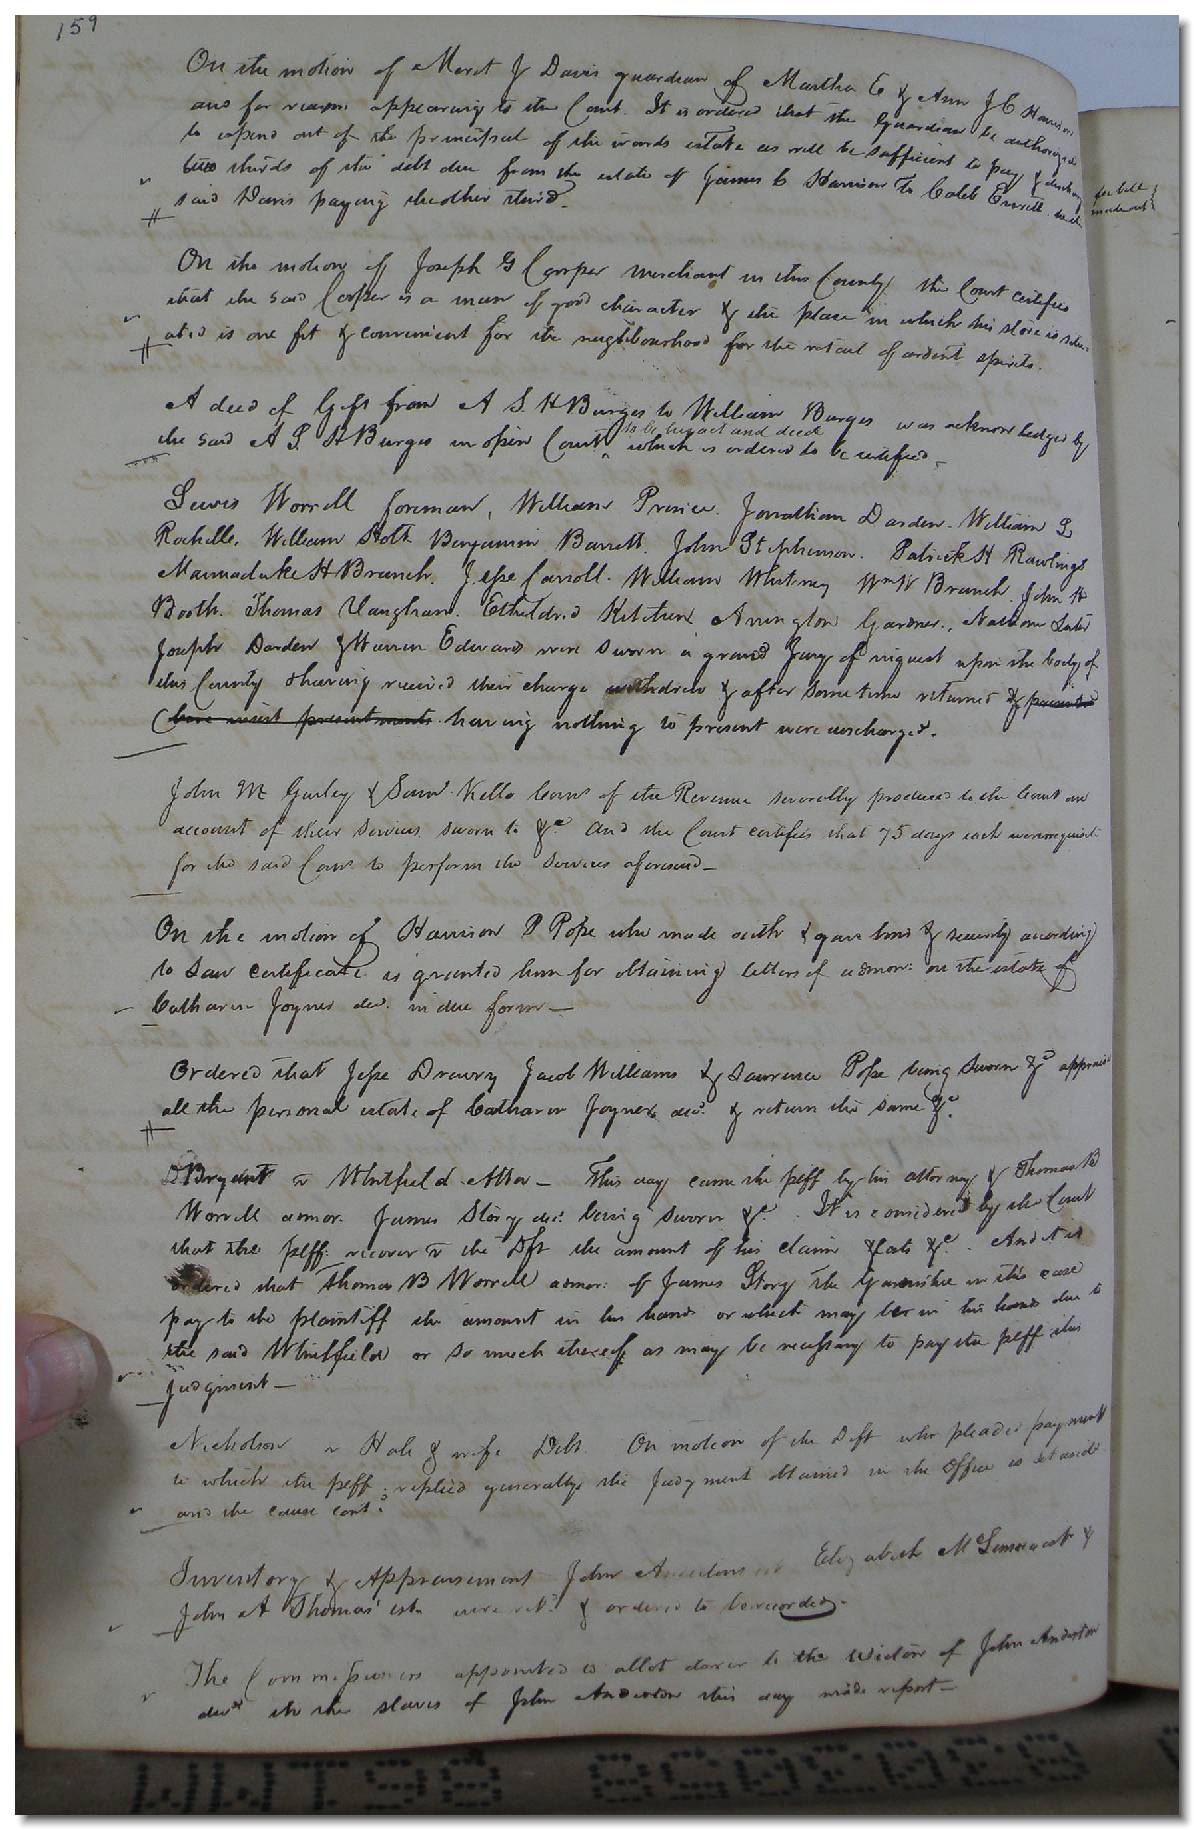 159
On the motion of Meret J Davis guardian of Martha E & Ann J C Harrison
and for reasons appearing to the Court. It is ordered that the guardian be authorized
to expend out of the principal of the wards estate as will be sufficient to pay &
two thirds of the debt due from the estate of James C Harrison to Caleb
said Davis paying the other third.
On the motion of Joseph G Cooper merchant in this County the Court certifies
that the said Cooper is a man of good character & the place in which his store is situ-
ated is one fit & convenient for the neighbourhood for the retail of ardent spirits.
A deed of Gift from A S H Burges to William Burges was acknowledged by
to be his act and deed
the said A S H Burges in open Court which is ordered to be certified.
Lewis Worrell foreman, William Prince. Jonathan Darden. William L
Rochelle. William Stott Benjamin Barrett. John Stephenson. Patrick H Rawlings
Marmaduke H Branch. Jesse Carroll. William Whitney Wm W Branch. John H
Booth. Thomas Vaughan. Etheldred Kitchen Arrington Gardner.,
Joseph Darden & Warren Edwards were sworn a grand Jury of inquest upon the body of
this County & having received their charge withdrew & after some time returned & presented
(here insert presentments having nothing to present were discharged.
John M Gurley & Saml Kello Comrs of the Revenue severally produced to the Court an
account of their services sworn to &c And the Court certifies that 75 days each were requisite
for the said Comrs to perform the services aforesaid—
On the motion of Harrison P Pope who made oath & gave bond & security according
to law certificate is granted him for obtaining letters of admon: on the estate of
Catharine Joyner decd. in due form—
Ordered that Jesse Drewry Jacob Williams & Lawrence Pope being sworn &c appraise
all the personal estate of Catharine Joyner decd. & return the same &c.
Bryant v Whitfield Atto— This day came the plff by his attorney & Thomas B
Worrell admor. James Story decd. being sworn &c. It is considered by the Court
that the plff: recover v the Dft the amount of his claim & costs &c. And it is
ordered that Thomas B Worrell admor: of James Story the Garnishee in this case
pay to the plaintiff the amount in his hands or which may be in his hands due to
the said Whitfield or so much thereof as may be necessary to pay the plff this
judgment—
Nicholson v Hale & wife Debt. On motion of the Deft who pleaded payment
to which the plff: replied generally the Judgment obtained in the Office is set aside
and the cause contd
Inventory & Appraisement John Elizabeth McLemore &
John A Thomas' este were retd & ordered to be recorded.
The Commissioners appointed to allot dower to the widow of John Anderton
decd in the slaves of John Anderton this day made report—